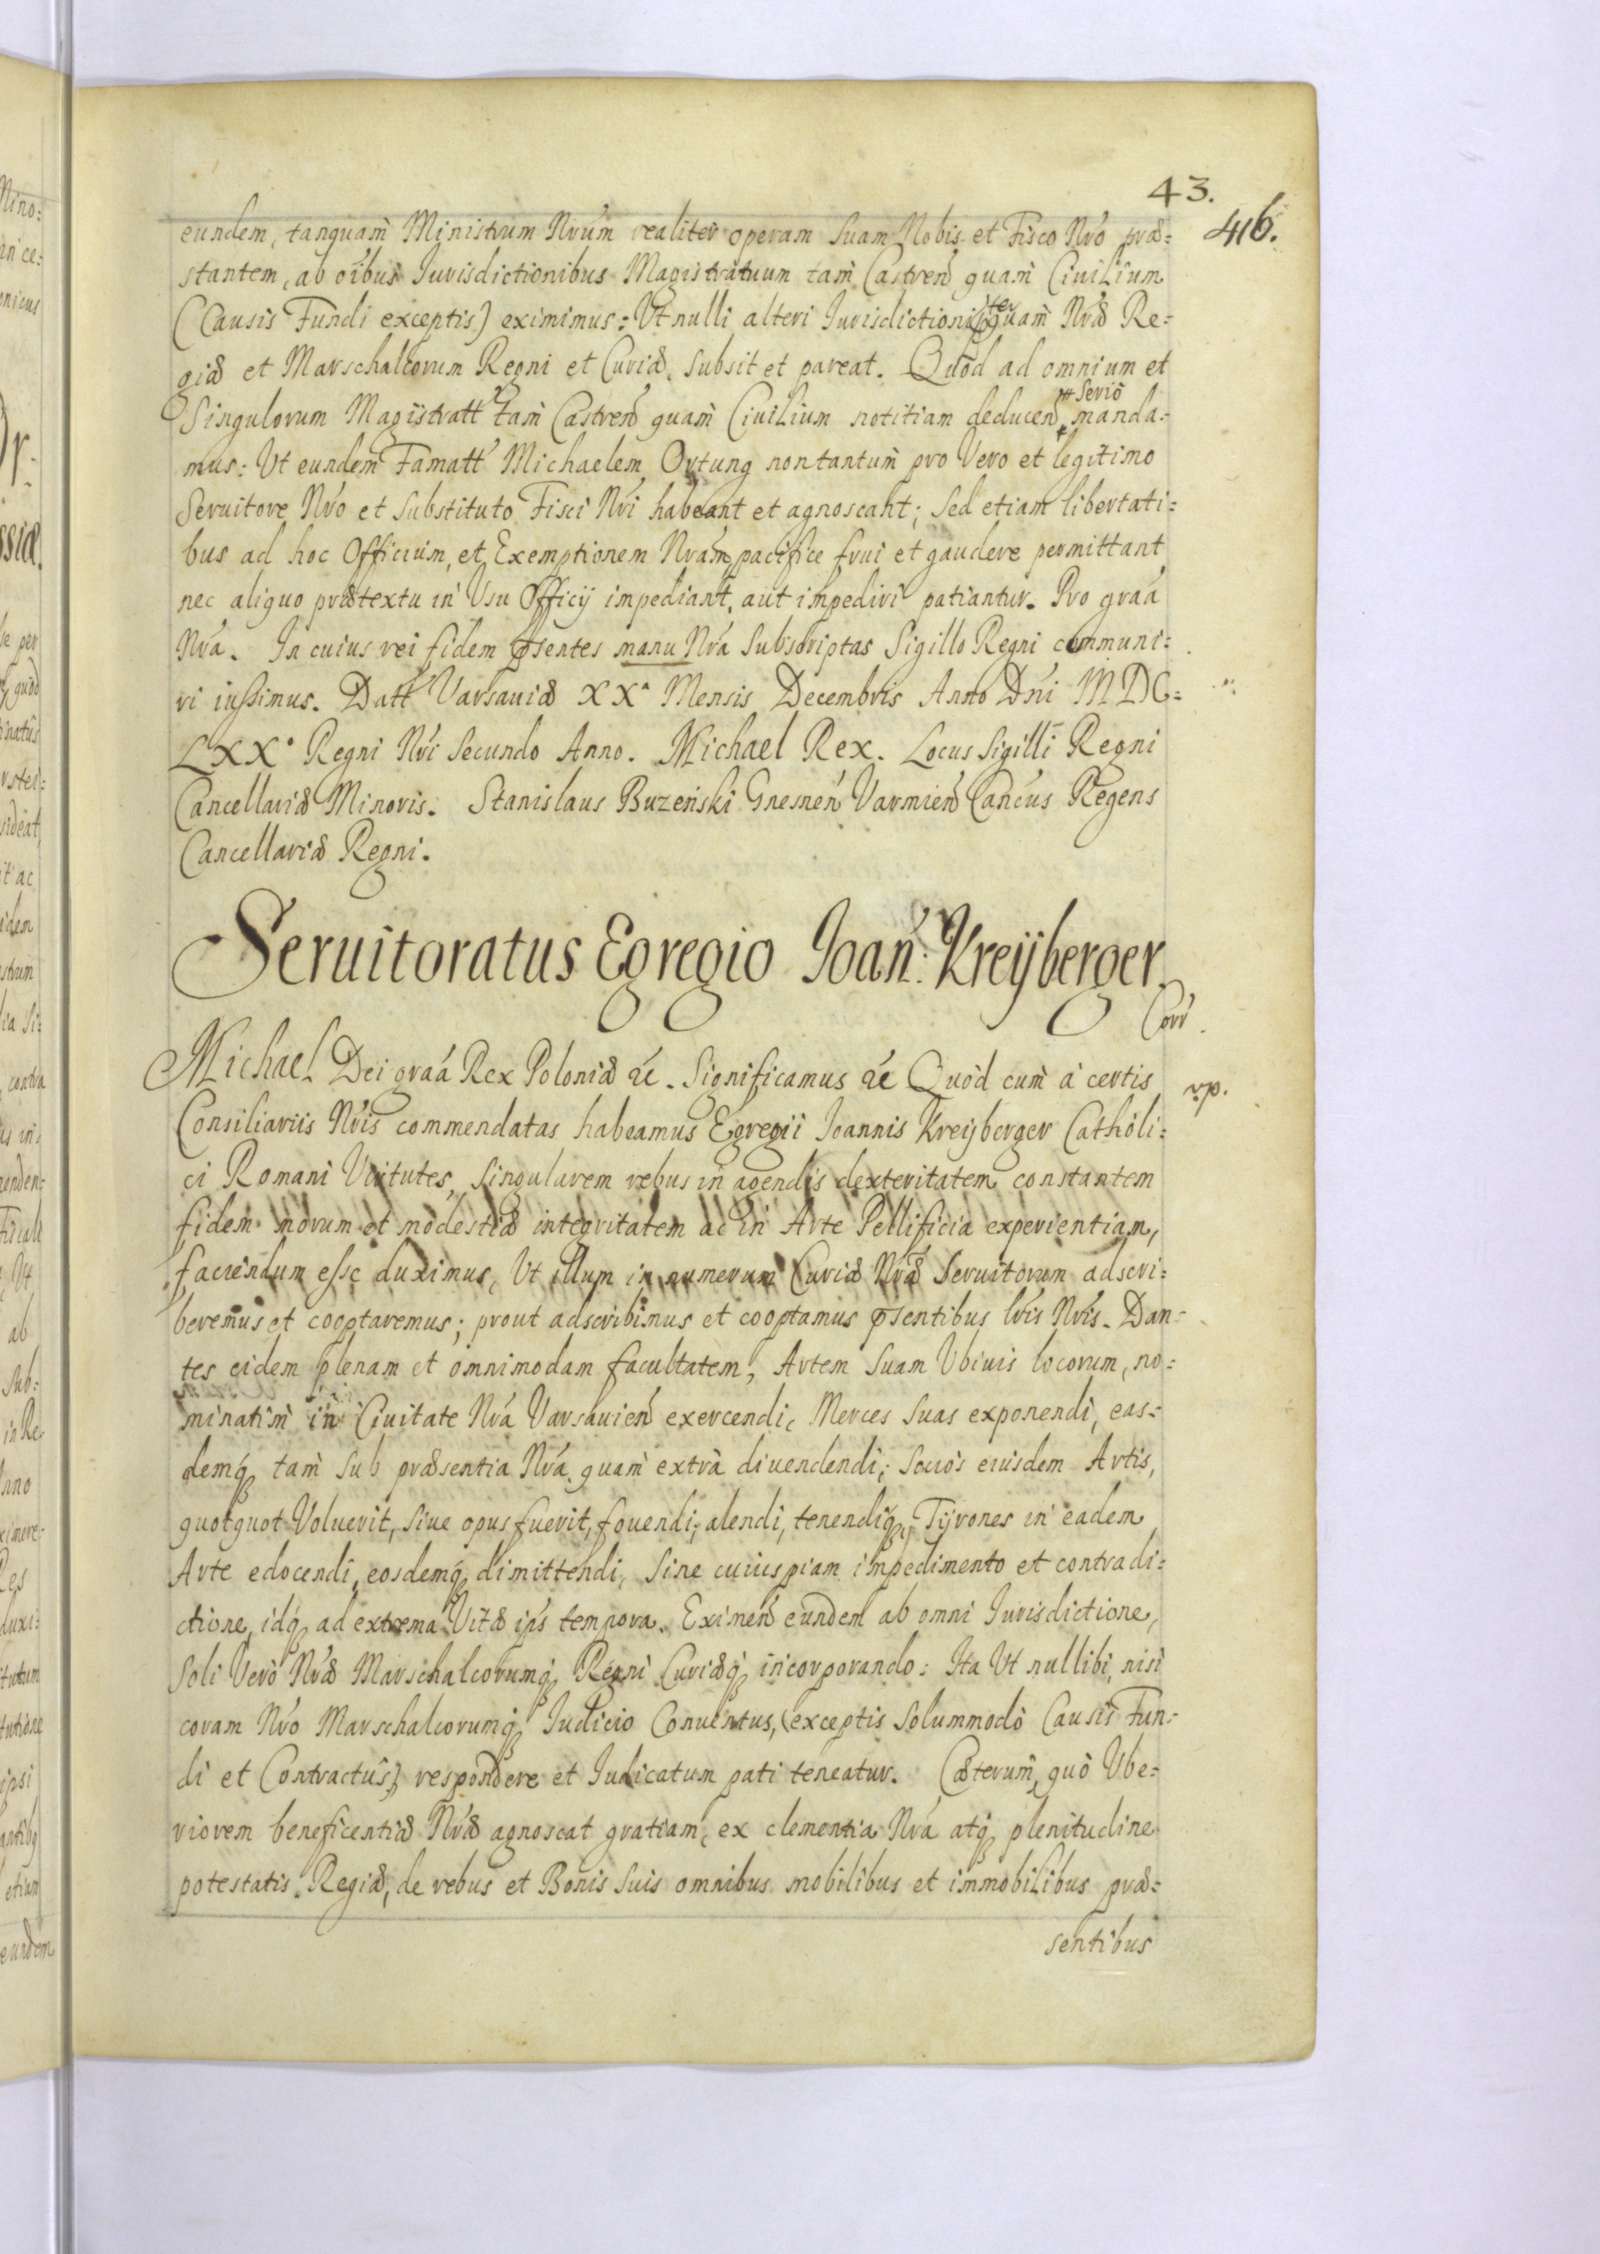 43.
416.
eundem, tanquam Ministrum Nrúm realiter operam Suam Nobis et Fisco Nró præ=
stantem, ab oibus Iurisdictionibus Magistratuum tam Castren quam Ciuilium
(Causis Fundi exceptis) eximimus: Vt nulli alteri Iurisdictioni quam Nræ Re=
giæ et Marschalcorum Regni et Curiæ subsit et pareat. Quod ad omnium et
Singulorum Magistratt tam Castren quam Ciuilium notitiam deducen serio manda=
mus: Vt eundem Famatt Michaelem Ortung non tantum pro Vero et legitimo
Seruitore Nró et Substituto Fisci Nri habeant et agnoscant; Sed etiam libertati=
bus ad hoc Officium, et Exemptionem Nrám pacifice frui et gaudere permittant
nec aliquo prætextu in Vsu Officij impediant, aut impediri patiantur. Pro graá
Nrá. In cuius rei fidem pnsentes manu Nrá Subscriptas Sigillo Regni communi=
ri iussimus. Datt Varsauiæ XXa Mensis Decembris Anno Dni MDC=
LXXo Regni Nri Secundo Anno. Michael Rex. Locus Sigilli Regni
Cancellariæ Minoris. Stanislaus Buzeński Gnesnen Varmien Cancus Regens
Cancellariæ Regni.
Seruitoratus Egregio Ioan: Kreijberger.
Corr.
Michael Dei graá Rex Poloniæ &c. Significamus &c Quod cum à certis
Consiliariis Nris commendatas habeamus Egregii Ioannis Kreijberger Catholi=
ci Romani Virtutes, Singularem rebus in agendis dexteritatem constantem
fidem morum et modestiæ integritatem ac in Arte Pellificia experientiam,
faciendum esse duximus, Vt illum in numerum Curiæ Nræ Seruitorum adscri=
beremus et cooptaremus; prout adscribimus et cooptamus pnsentibus lris Nris. Dan=
tes eidem plenam et omnimodam facultatem, Artem Suam Vbiuis locorum, no=
minatim in Ciuitate Nrá Varsauien exercendi, Merces Suas exponendi, eas=
demq tam Sub præsentia Nrá quam extrà diuendendi; Socios eiusdem Artis,
quotquot Voluerit, Siue opus fuerit, fouendi, alendi, tenendiq, Tijrones in eadem
Arte edocendi, eosdemq dimittendi, Sine cuiuspiam impedimento et contradi=
ctione, idq ad extrema Vitæ ips tempora. Eximen eundem ab omni Iurisdictione,
Soli Verò Nræ Marschalcorumq Regni Curiæq incorporando: Ita Vt nullibi, nisi
coram Nro Marschalcorumq Iudicio Conuentus, (exceptis Solummodò Causis Fun=
di et Contractûs) respondere et Iudicatum pati teneatur. Cæterum, quò Vbe=
riorem beneficentiæ Nræ agnoscat gratiam, ex clementia Nrá atq plenitudine
potestatis Regiæ, de rebus et Bonis Suis omnibus mobilibus et immobilibus præ=
sentibus